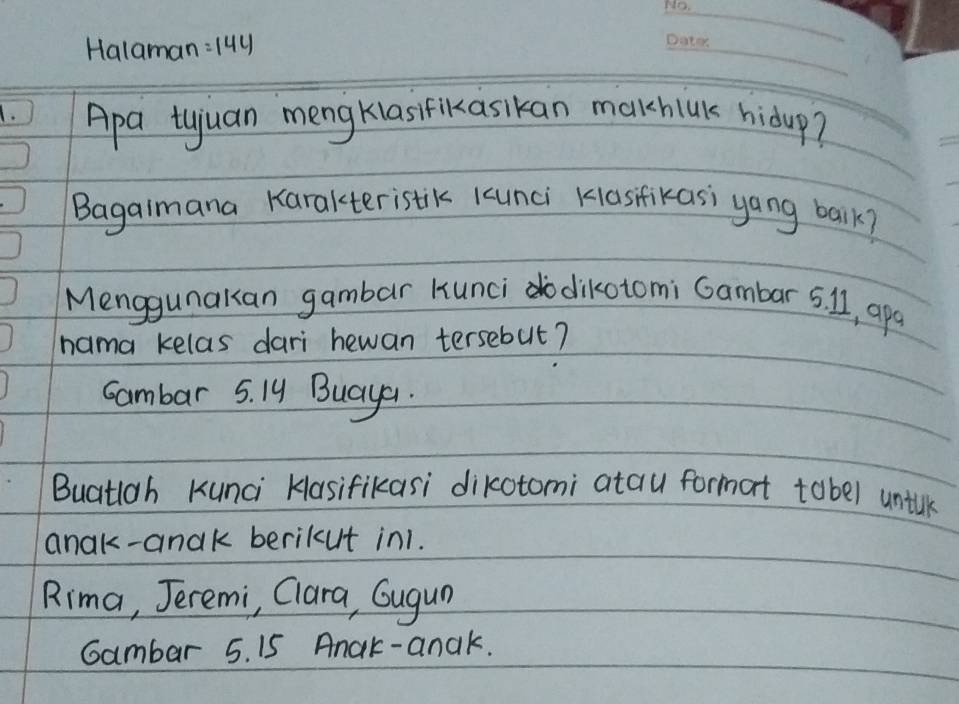 No.
Halaman=144
Date:
1. Apa tujuan mengklasifikasikan makhluk hidup?
Bagaimana Karakteristik kunci klasifikasi yang baik?
Menggunakan gambar kunci dodikotomi Gambar 5.11, apa
nama kelas dari hewan tersebut?
Gambar 5.14 Buaya.
Buatlah kunci klasifikasi dikotomi atau format tabel untuk
anak-anak berikut ini.
Rima, Jeremi, Clara, Gugun
Gambar 5.15 Anak-anak.